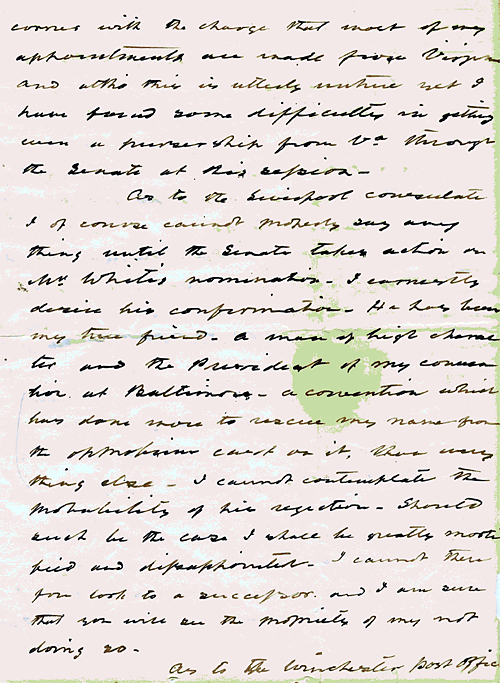 comes with the charge that most of my
appointments are made from Virgin
and altho this is utterly untrue yet I
have found some difficulty in getting
even a pursership from Va through
the Senate at this session -
As to the Liverpool consulate
I of course cannot properly say any
thing until the Senate takes action on
Mr White's nomination - I earnestly
desire his confirmation - He has been
my true friend - a man of high charac
ter and the President of my conven
tion at Baltimore - a convention which
has done more to rescue my name from
the opprobrium cast on it, than every
thing else - I cannot contemplate the
probability of his rejection - Should
such be the case I shall be greatly morti
fied and disappointed - I cannot there
fore look to a successor and I am sure
that you will see the propriety of my not
doing so -
As to the Winchester Post Offic